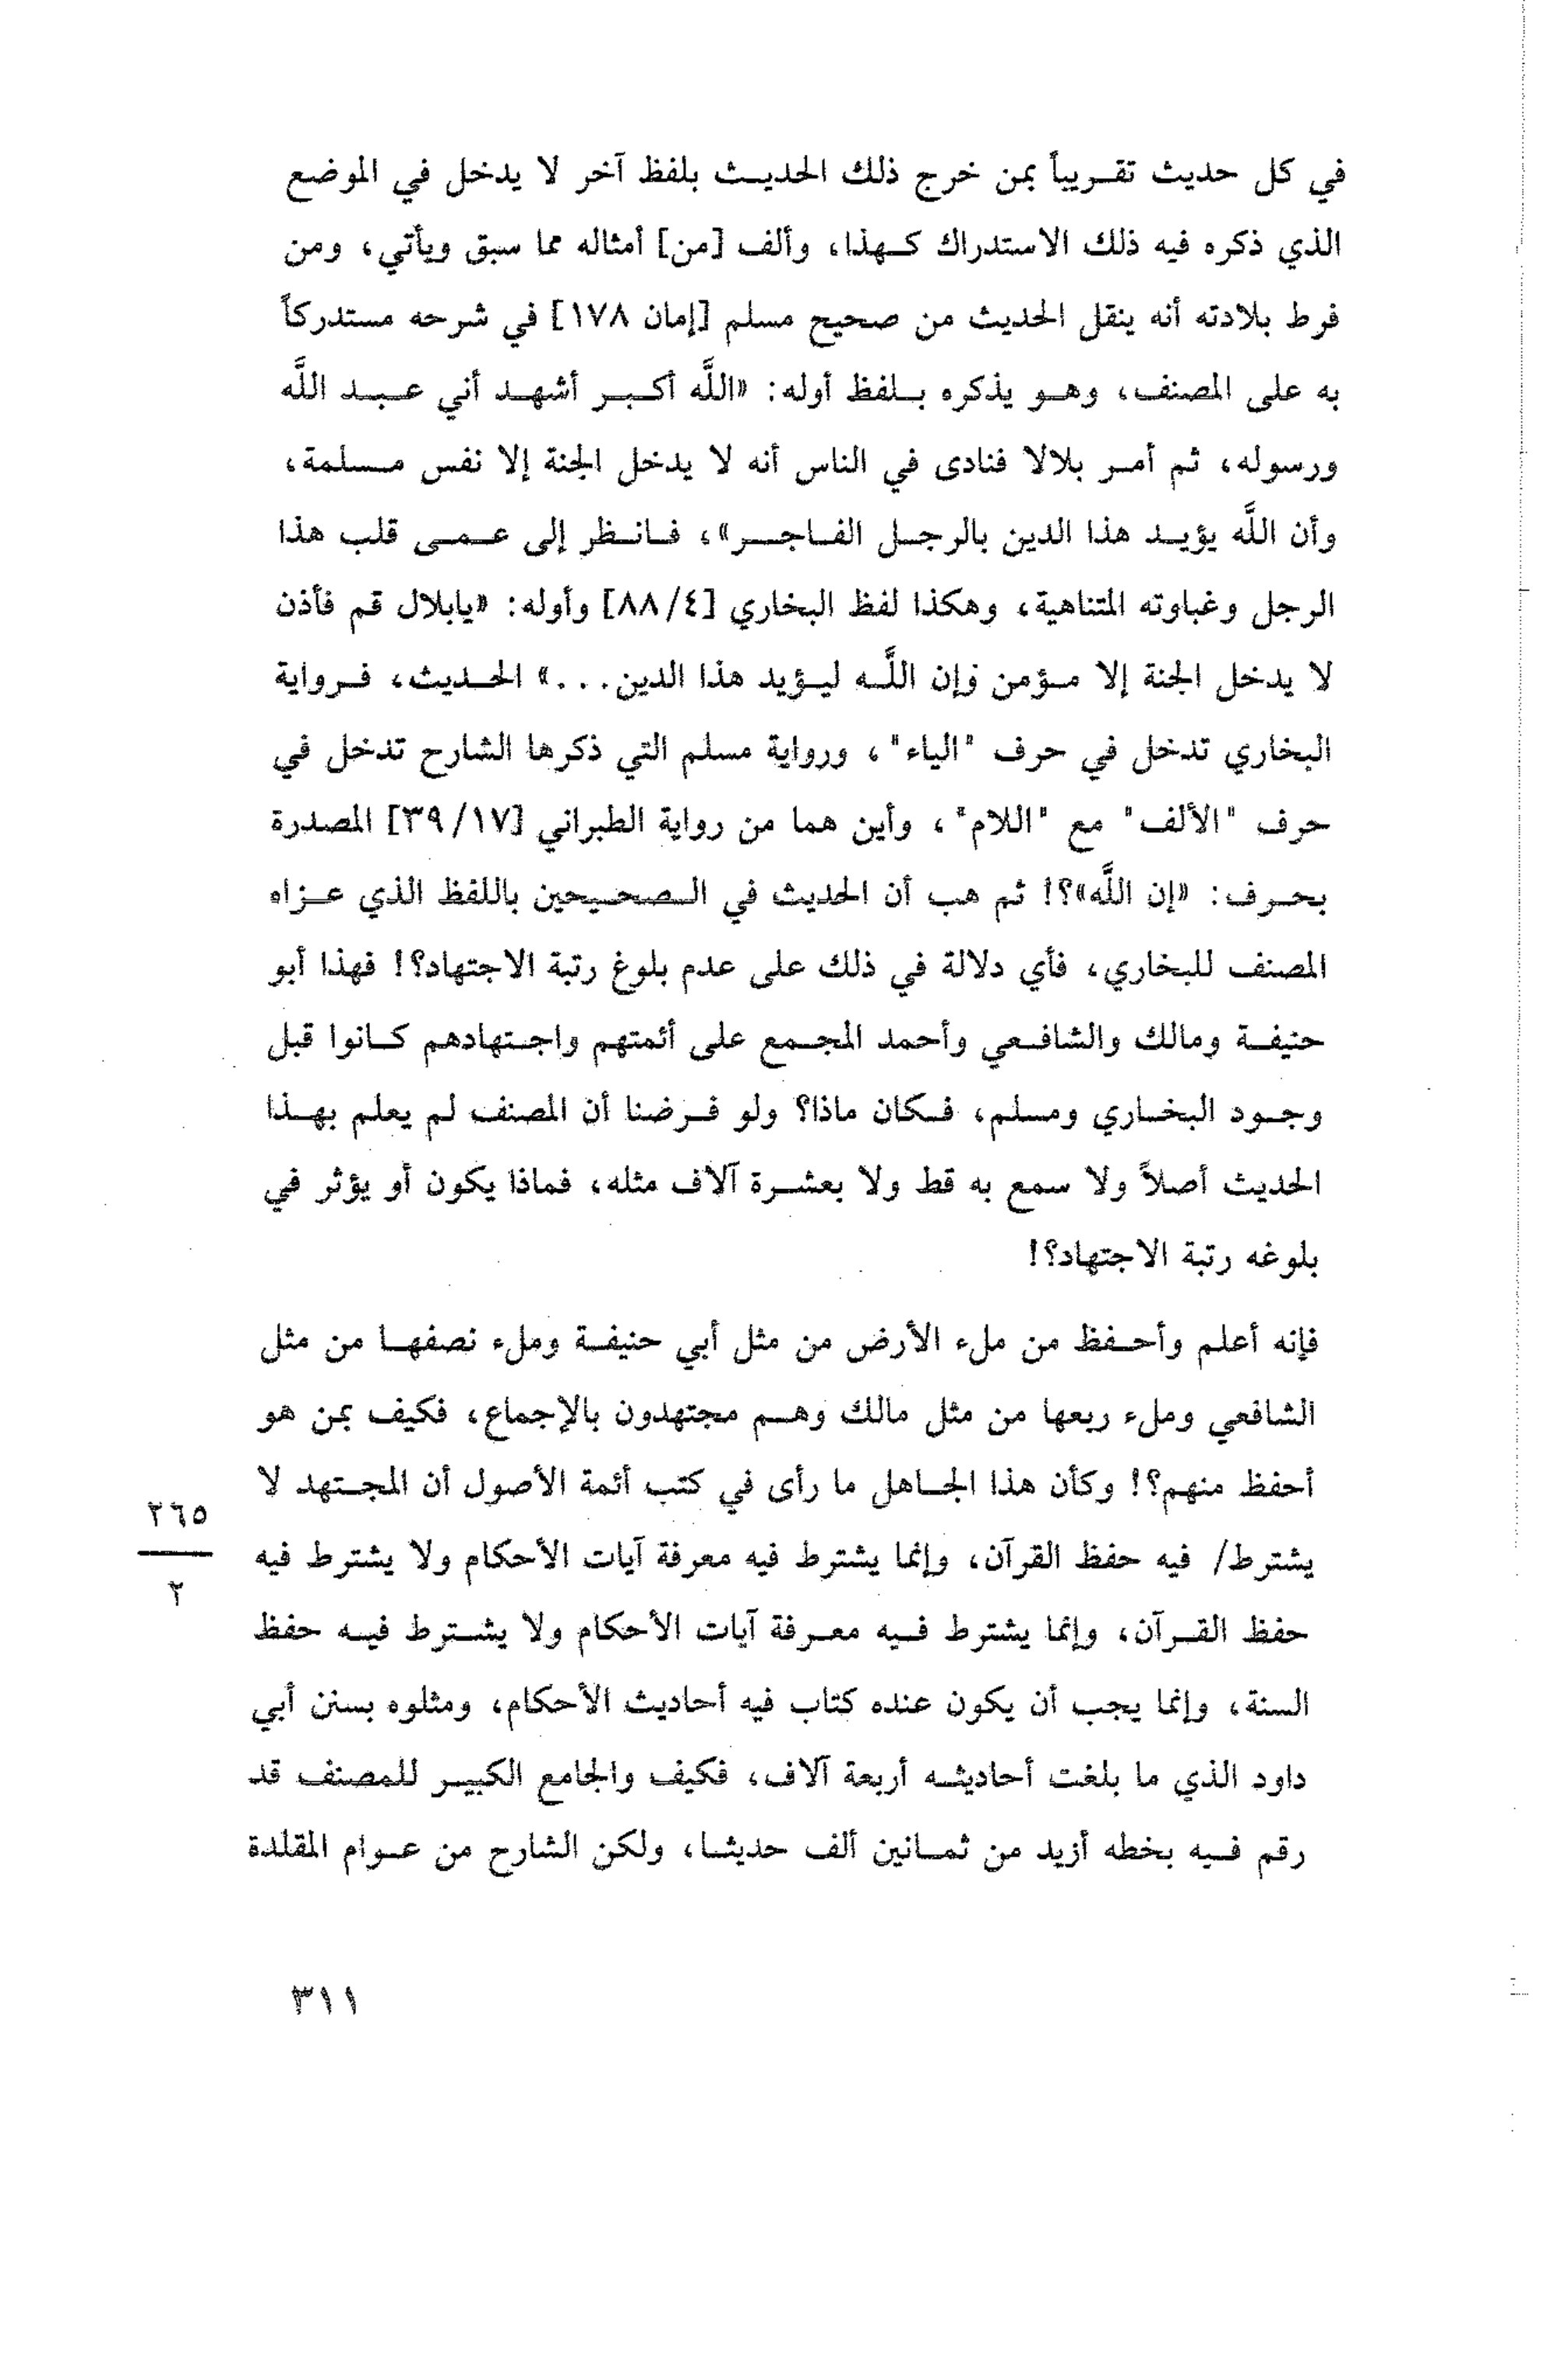 في كل حديث تقريباً بمن خرج ذلك الحديث بلفظ آخر لا يدخل في الموضع
الذي ذكره فيه ذلك الاستدراك كهذا، وألف [من] أمثاله مما سبق ويأتي، ومن
فرط بلادته أنه ينقل الحديث من صحيح مسلم [إمان ١٧٨] في شرحه مستدركاً
به على المصنف، وهو يذكره بلفظ أوله: «اللَّه أكبر أشهد أني عبد اللَّه
ورسوله، ثم أمر بلالا فنادى في الناس أنه لا يدخل الجنة إلا نفس مسلمة،
وأن اللَّه يؤيد هذا الدين بالرجل الفاجر»، فانظر إلى عمى قلب هذا
الرجل وغباوته المتناهية، وهكذا لفظ البخاري [٨٨/٤] وأوله: «يابلال قم فأذن
لا يدخل الجنة إلا مؤمن وإن اللَّه ليؤيد هذا الدين...» الحديث، فرواية
البخاري تدخل في حرف "الياء"، ورواية مسلم التي ذكرها الشارح تدخل في
حرف "الألف" مع "اللام"، وأين هما من رواية الطبراني [٣٩/١٧] المصدرة
بحرف: «إن اللَّه»؟! ثم هب أن الحديث في الصحيحين باللفظ الذي عزاه
المصنف للبخاري، فأي دلالة في ذلك على عدم بلوغ رتبة الاجتهاد؟! فهذا أبو
حنيفة ومالك والشافعي وأحمد المجمع على أئمتهم واجتهادهم كانوا قبل
وجود البخاري ومسلم، فكان ماذا؟ ولو فرضنا أن المصنف لم يعلم بهذا
الحديث أصلاً ولا سمع به قط ولا بعشرة آلاف مثله، فماذا يكون أو يؤثر في
بلوغه رتبة الاجتهاد؟!
فإنه أعلم وأحفظ من ملء الأرض من مثل أبي حنيفة وملء نصفها من مثل
الشافعي وملء ربعها من مثل مالك وهم مجتهدون بالإجماع، فكيف بمن هو
أحفظ منهم؟! وكأن هذا الجاهل ما رأى في كتب أئمة الأصول أن المجتهد لا
يشترط/ فيه حفظ القرآن، وإنما يشترط فيه معرفة آيات الأحكام ولا يشترط فيه
٢٦٥
٢
حفظ القرآن، وإنما يشترط فيه معرفة آيات الأحكام ولا يشترط فيه حفظ
السنة، وإنما يجب أن يكون عنده كتاب فيه أحاديث الأحكام، ومثلوه بسنن أبي
داود الذي ما بلغت أحاديثه أربعة آلاف، فكيف والجامع الكبير للمصنف قد
رقم فيه بخطه أزيد من ثمانين ألف حديثا، ولكن الشارح من عوام المقلدة
٣١١